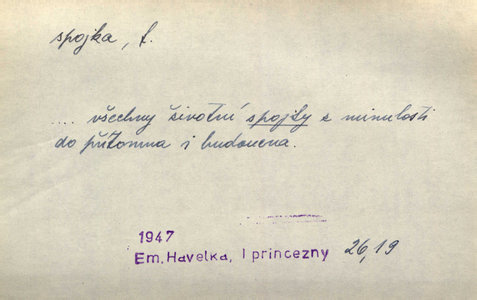 spojka, f.
.... všechny životní spojky z minulosti
do přítomna i budoucna.
1947
Em. Havelka, I princezny 26,19